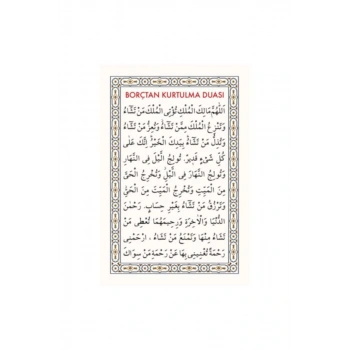 BORÇTAN KURTULMA DUASI
اَللّٰهُمَّ مَالِكَ الْمُلْكِ تُؤْتِى الْمُلْكَ مَنْ تَشَٓاءُ
وَتَنْزِعُ الْمُلْكَ مِمَّنْ تَشَٓاءُ وَتُعِزُّ مَنْ تَشَٓاءُ
وَتُذِلُّ مَنْ تَشَٓاءُ بِيَدِكَ الْخَيْرُ اِنَّكَ عَلٰى
كُلِّ شَىْءٍ قَدِيرٌ. تُولِجُ الَّيْلَ فِى النَّهَارِ
وَتُولِجُ النَّهَارَ فِى الَّيْلِ وَتُخْرِجُ الْحَىَّ
مِنَ الْمَيِّتِ وَتُخْرِجُ الْمَيِّتَ مِنَ الْحَىِّ
وَتَرْزُقُ مَنْ تَشَٓاءُ بِغَيْرِ حِسَابٍ. رَحْمٰنَ
الدُّنْيَا وَالْاٰخِرَةِ وَرَحِيمَهُمَا تُعْطِى مَنْ
تَشَٓاءُ مِنْهَا وَتَمْنَعُ مَنْ تَشَٓاءُ ، اِرْحَمْنِى
رَحْمَةً تُغْنِينِى بِهَا عَنْ رَحْمَةِ مَنْ سِوَاكَ